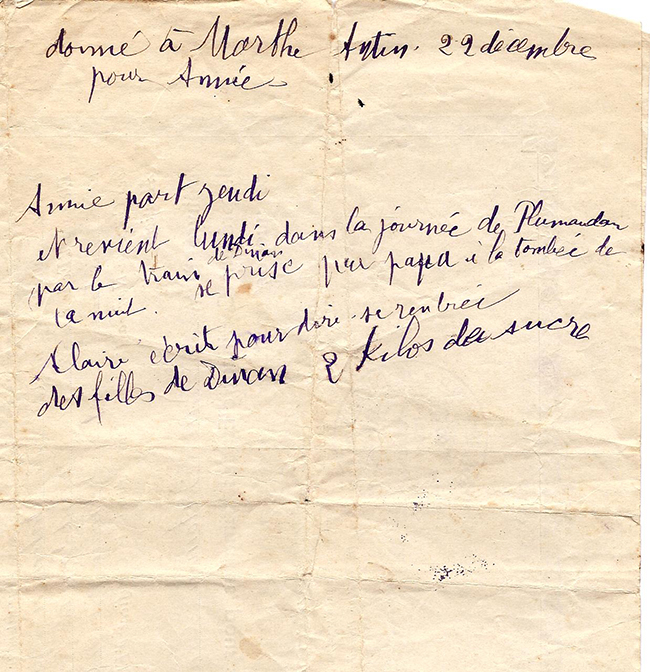 donné à Marthe Antin. 22 décembre
pour Annie
Annie part jeudi
et revient lundi dans la journée de Plumaudan
par le train de Dinan se prise par papa à la tombée de
la nuit.
Claire écrite pour dire se rentrée
des filles de Dinan 2 kilos de sucre